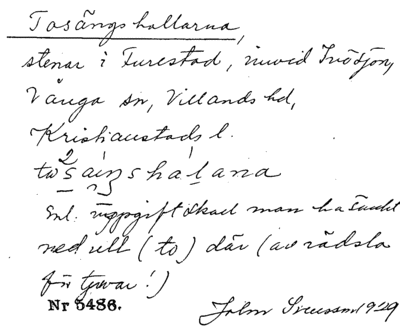 Tosängshallarna,
stenar i Furestad, invid Ivösjön,
Vånga sn, Villands hd,
Kristianstads l.
enl. uppgift skall man ha sänkt
ned ull (to) där (av rädsla
för tjuvar!)
Nr 5486.
John Svensson 1929